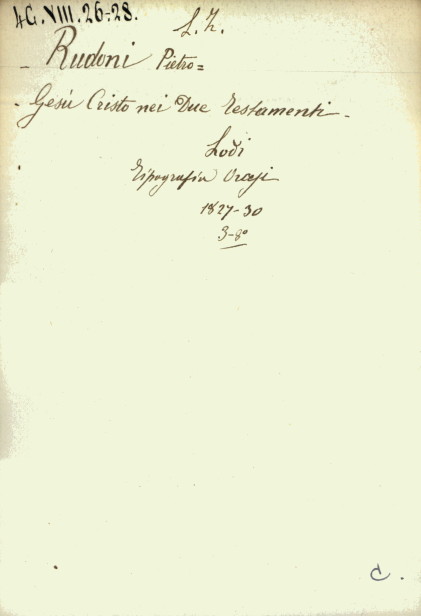 4G.VIII.26-28.
L. Z.
Rudoni Pietro=
- Gesù Cristo nei Due Testamenti -
Lodi
Tipografia Orcesi
1827-30
3-8º
C.